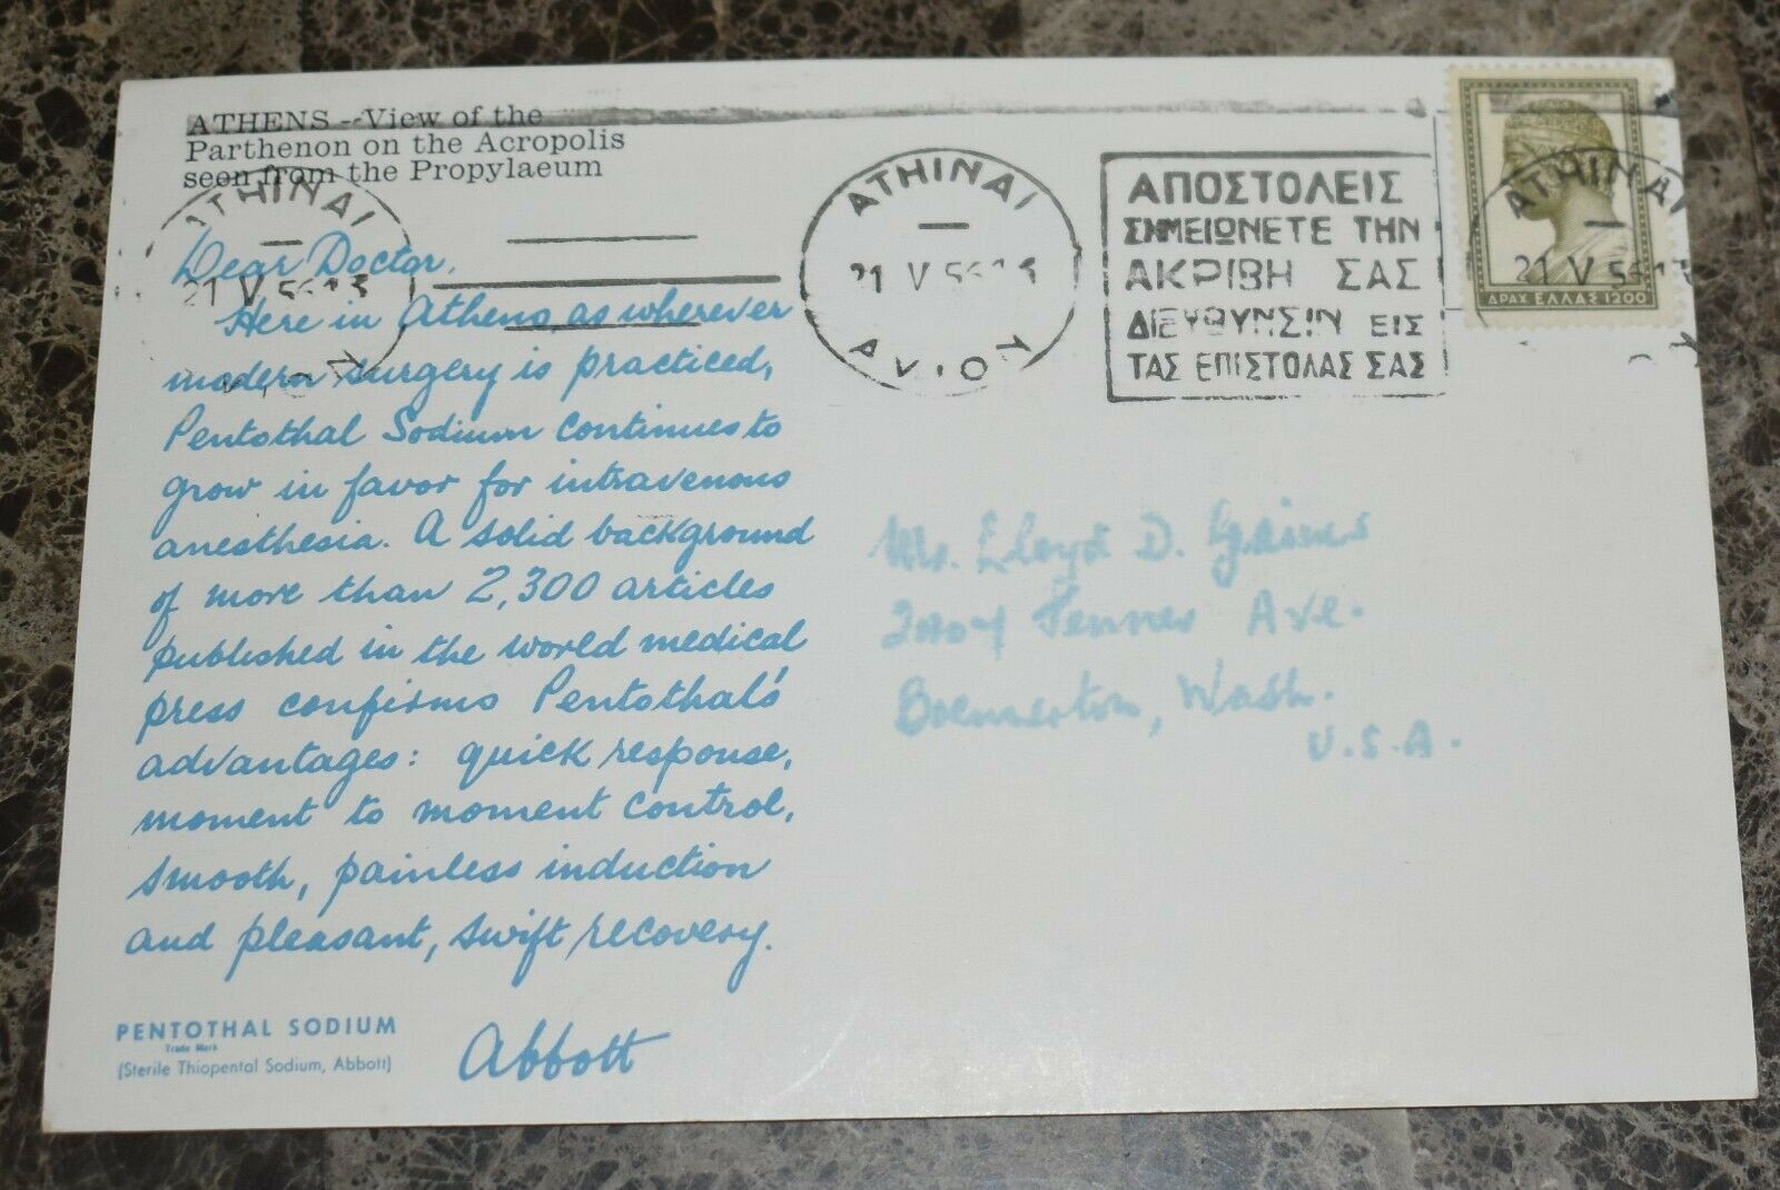 ATHENS -- View of the
Parthenon on the Acropolis
seen from the Propylaeum
ATHINAI
21 V 56
ATHINAI
21 V 56
ΑΠΟΣΤΟΛΕΙΣ
ΣΗΜΕΙΩΝΕΤΕ ΤΗΝ
ΑΚΡΙΒΗ ΣΑΣ
ΔΙΕΥΘΥΝΣΙΝ ΕΙΣ
ΤΑΣ ΕΠΙΣΤΟΛΑΣ ΣΑΣ
ATHINAI
21 V 56
ΔΡΑΧ. ΕΛΛΑΣ 1200
Dear Doctor,
Here in Athens, as wherever
modern surgery is practiced,
Pentothal Sodium continues to
grow in favor for intravenous
anesthesia. A solid background
of more than 2,300 articles
published in the world medical
press confirms Pentothal's
advantages: quick response,
moment to moment control,
smooth, painless induction
and pleasant, swift recovery.
Abbott
PENTOTHAL SODIUM
Trade Mark
(Sterile Thiopental Sodium, Abbott)
Lloyd D. Gaines
Ave.
Bremerton, Wash.
U.S.A.